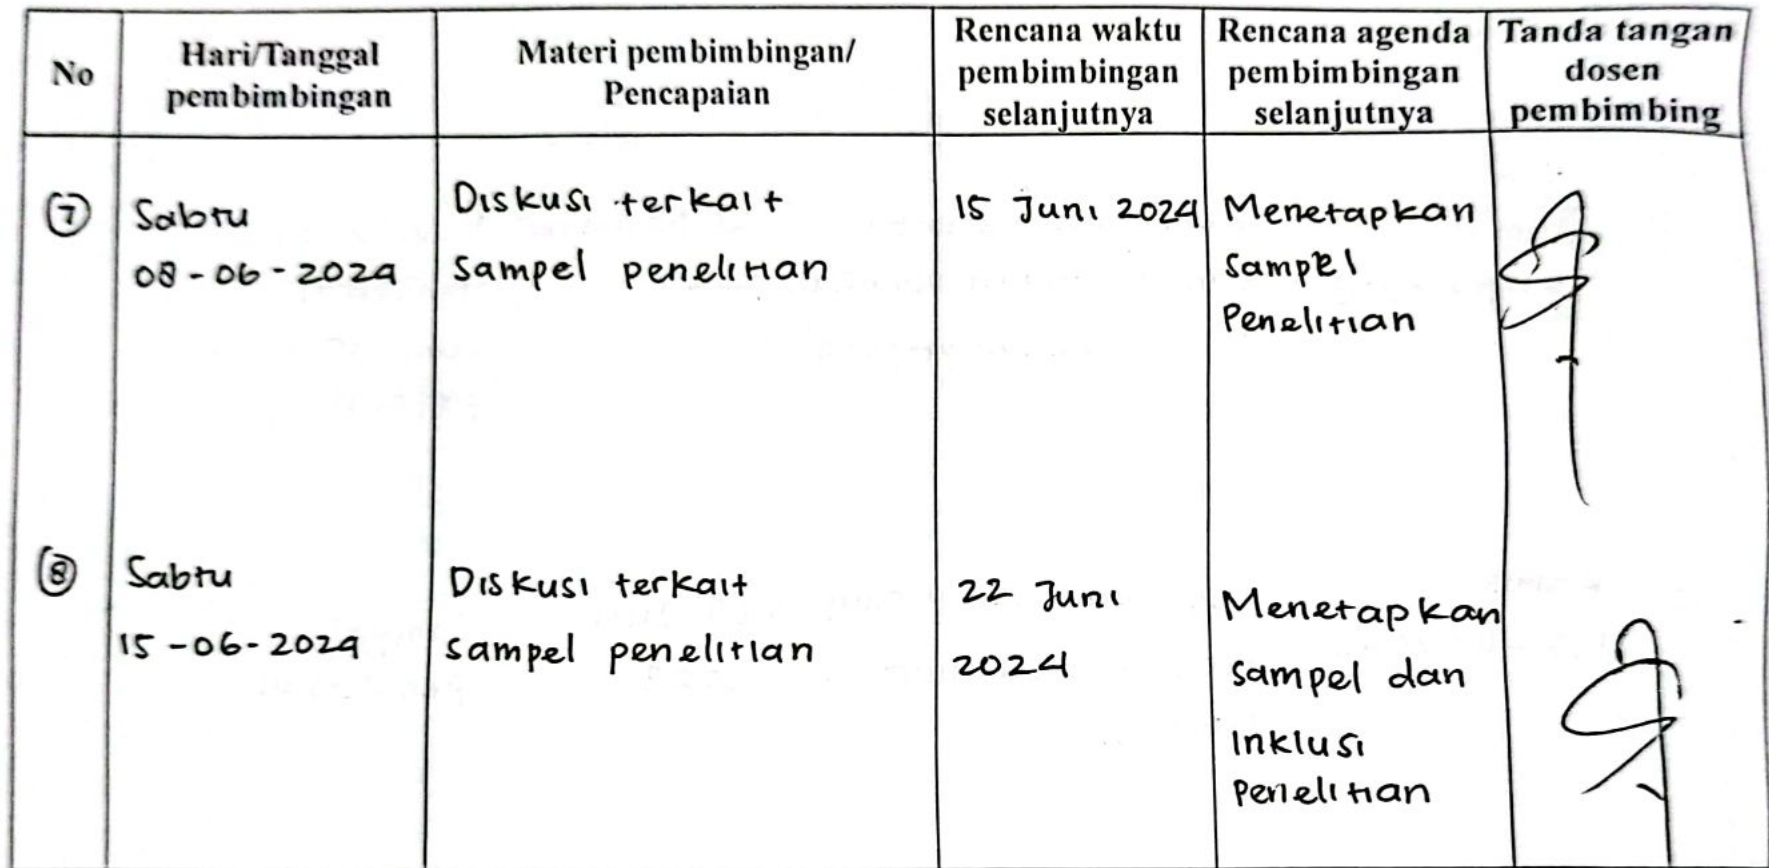 No
Hari/Tanggal
pembimbingan
Materi pembimbingan/
Pencapaian
Rencana waktu
pembimbingan
selanjutnya
Rencana agenda
pembimbingan
selanjutnya
Tanda tangan
dosen
pembimbing
7
Sabtu
08-06-2024
Diskusi terkait
sampel penelitian
15 Juni 2024
Menetapkan
Sampel
Penelitian
8
Sabtu
15-06-2024
Diskusi terkait
sampel penelitian
22 Juni
2024
Menetapkan
sampel dan
Inklusi
Penelitian